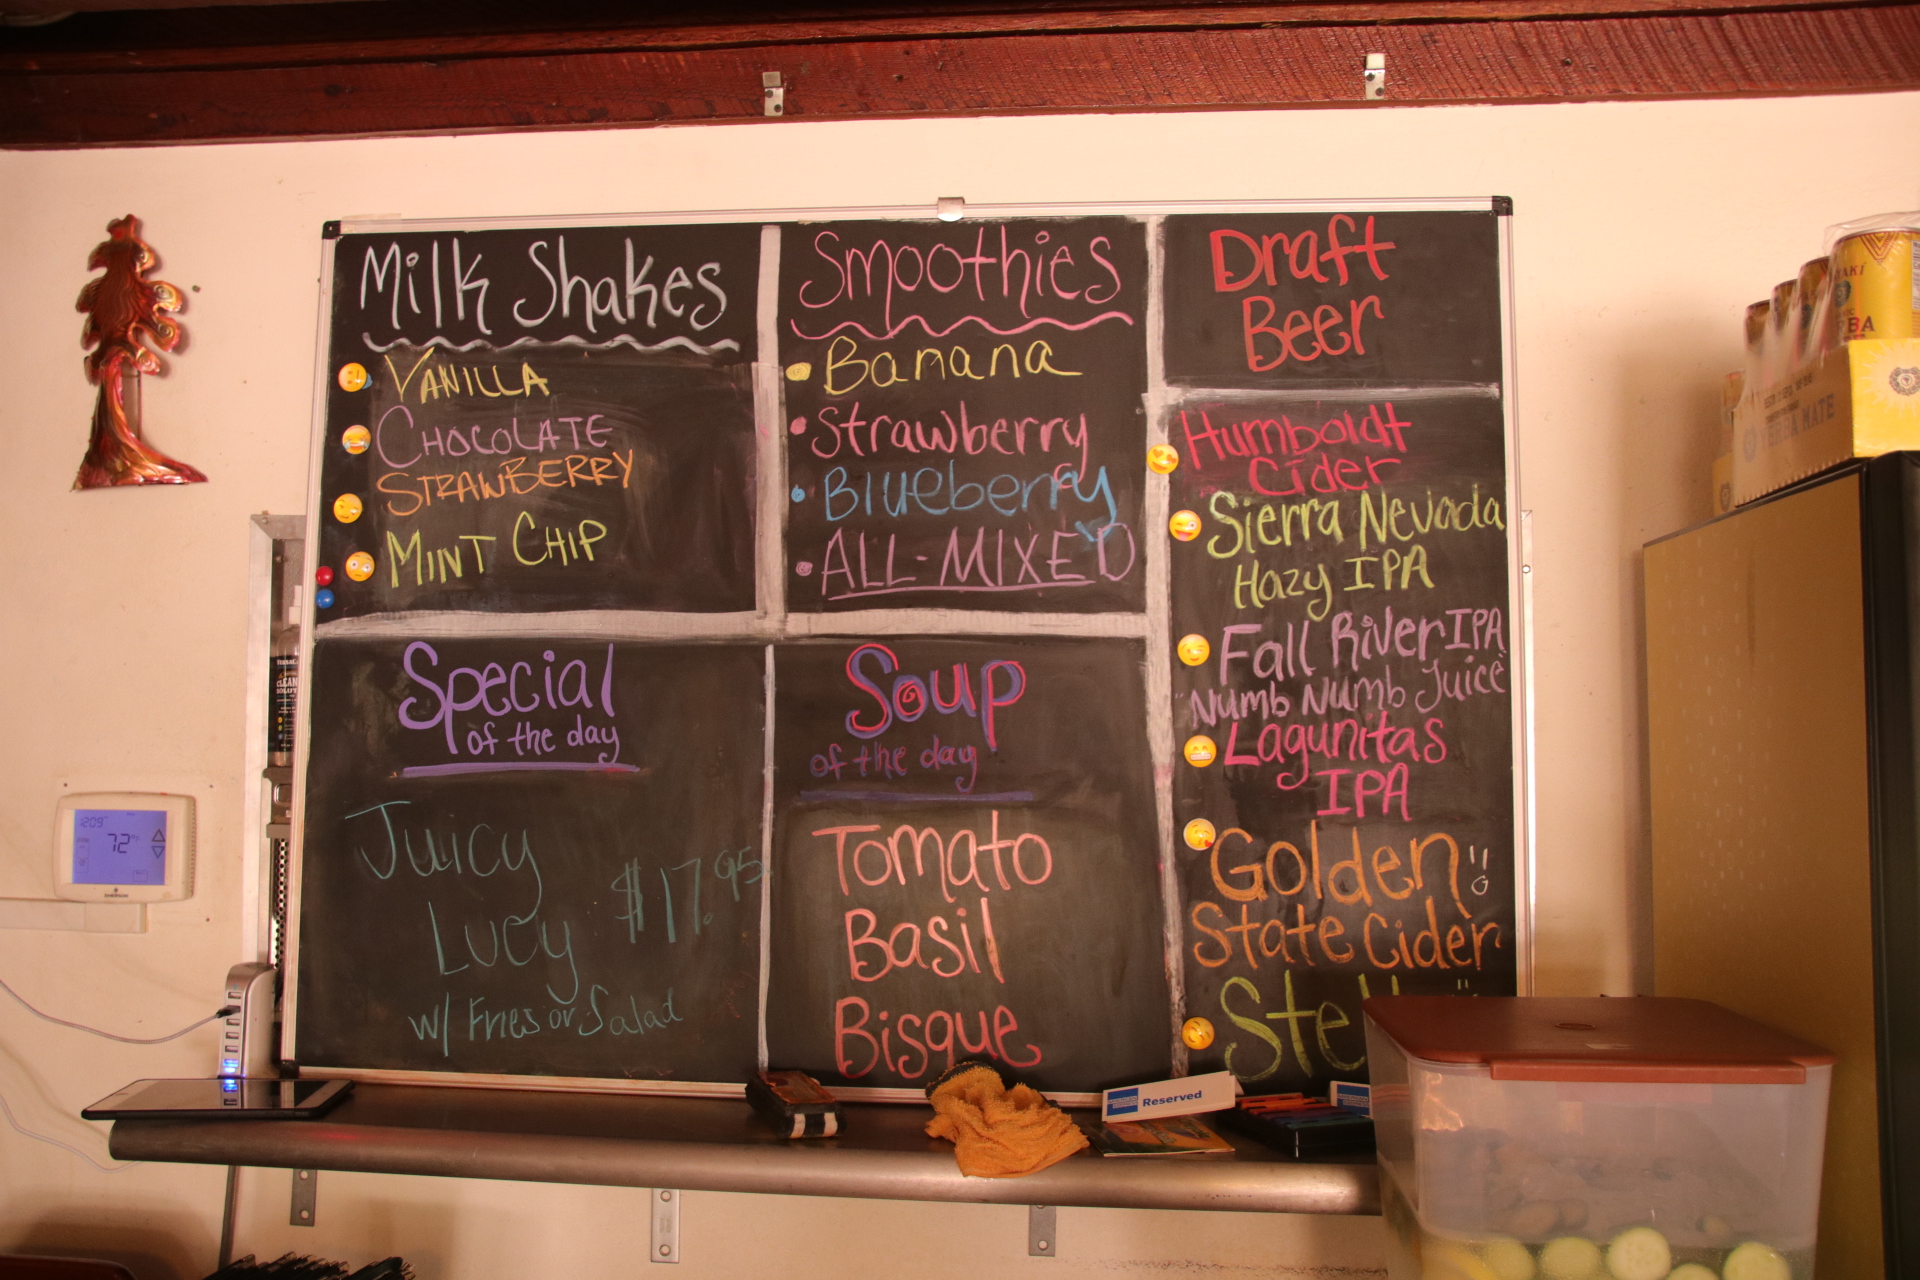 Milk Shakes
VANILLA
CHOCOLATE
STRAWBERRY
MINT CHIP
Smoothies
Banana
Strawberry
Blueberry
ALL-MIXED
Draft
Beer
Humboldt
Cider
Sierra Nevada
Hazy IPA
Fall River IPA
"Numb Numb Juice"
Lagunitas
IPA
Golden
State Cider
Ste
Special
of the day
Juicy
Lucy $17.95
w/ Fries or Salad
Soup
of the day
Tomato
Basil
Bisque
Reserved
72
EMERSON
CLEAN
YERBA MATE